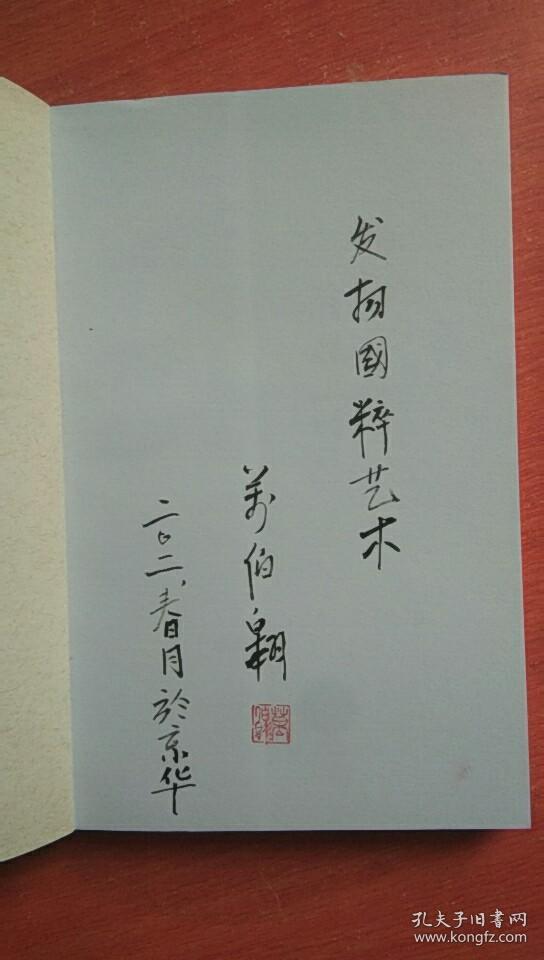 发扬國粹艺术
萬伯翱
春月於京华
孔夫子旧书网
www.kongfz.com